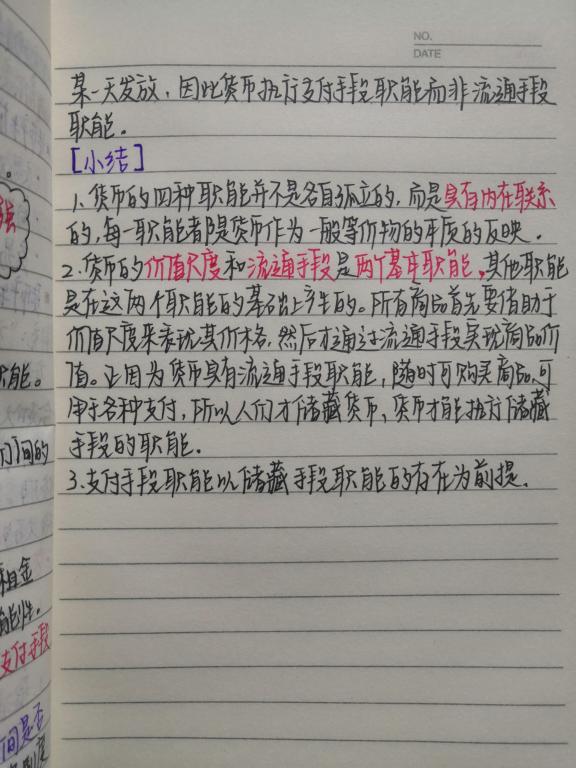 NO.
DATE
某一天发放，因此货币执行支付手段职能而非流通手段
职能。
[小结]
1.货币的四种职能并不是各自孤立的，而是具有内在联系
的，每一职能都是货币作为一般等价物的本质的反映。
2.货币的价值尺度和流通手段是两个基本职能，其他职能
是在这两个职能的基础上产生的。所有商品首先要借助于
价值尺度来表现其价格，然后才通过流通手段实现商品价
值。正因为货币具有流通手段职能，随时可购买商品，可
用于各种支付，所以人们才储藏货币，货币才能执行储藏
手段的职能。
3.支付手段职能以储藏手段职能的存在为前提。
强
职能。
们间的
租金
能性。
支付手段
间是否